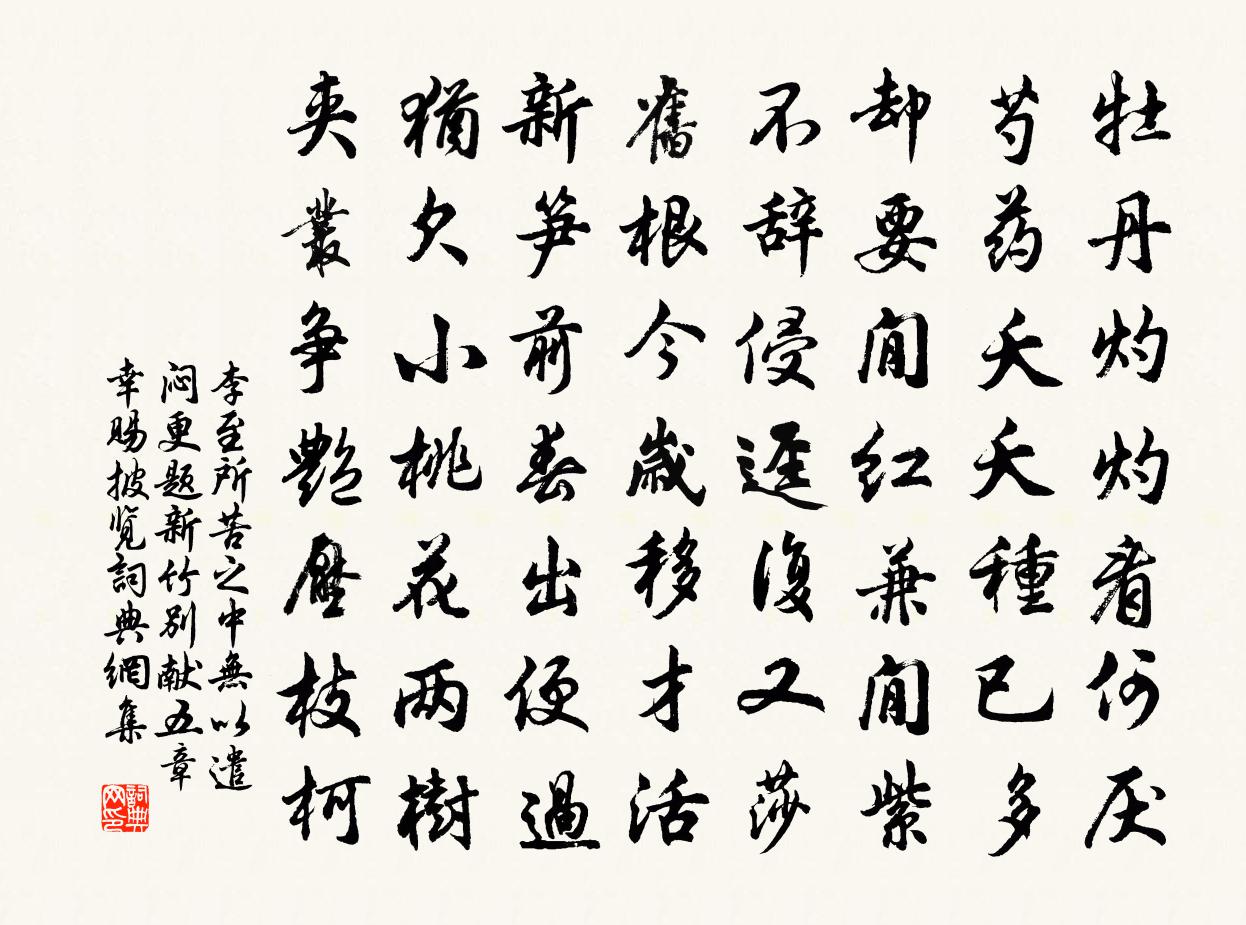 牡丹灼灼看何厌
芍药夭夭種已多
却要间红兼间紫
不辞侵迳復又莎
舊根今歲移才活
新笋前春出便過
猶欠小桃花两樹
夹叢争艷壓枝柯
李至所苦之中無以遣
闷更题新竹别献五章
幸赐披览詞典網集
詞典网印